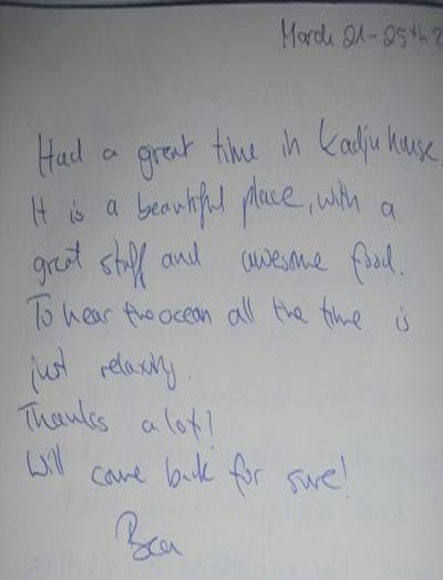 March 21-25th 2
Had a great time in Kadju house.
It is a beautiful place, with a
great staff and awesome food.
To hear the ocean all the time is
just relaxing.
Thanks a lot!
Will come back for sure!
Bea